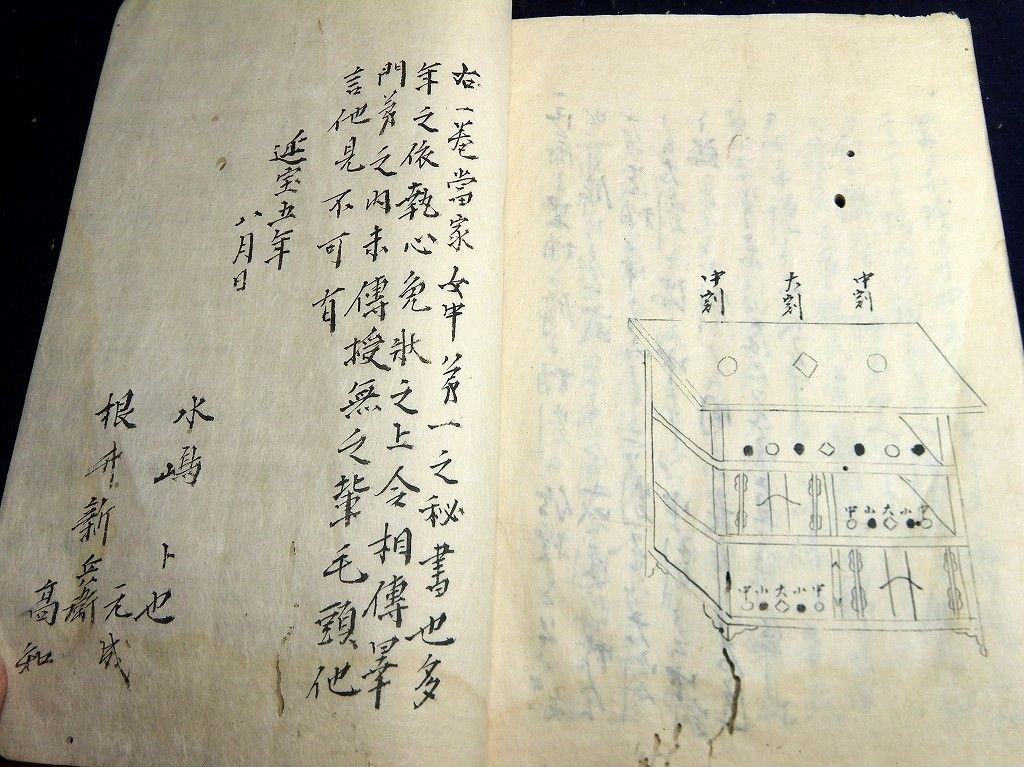 中割
大割
中割
中小大小中
中小大小中
右一巻當家女中第一之秘書也多
年之依執心免状之上令相傳畢
門弟之内未傳授無之輩毛頭他
言他見不可有
延宝五年
八月日
水嶋卜也
元成
根井新兵衛
高知